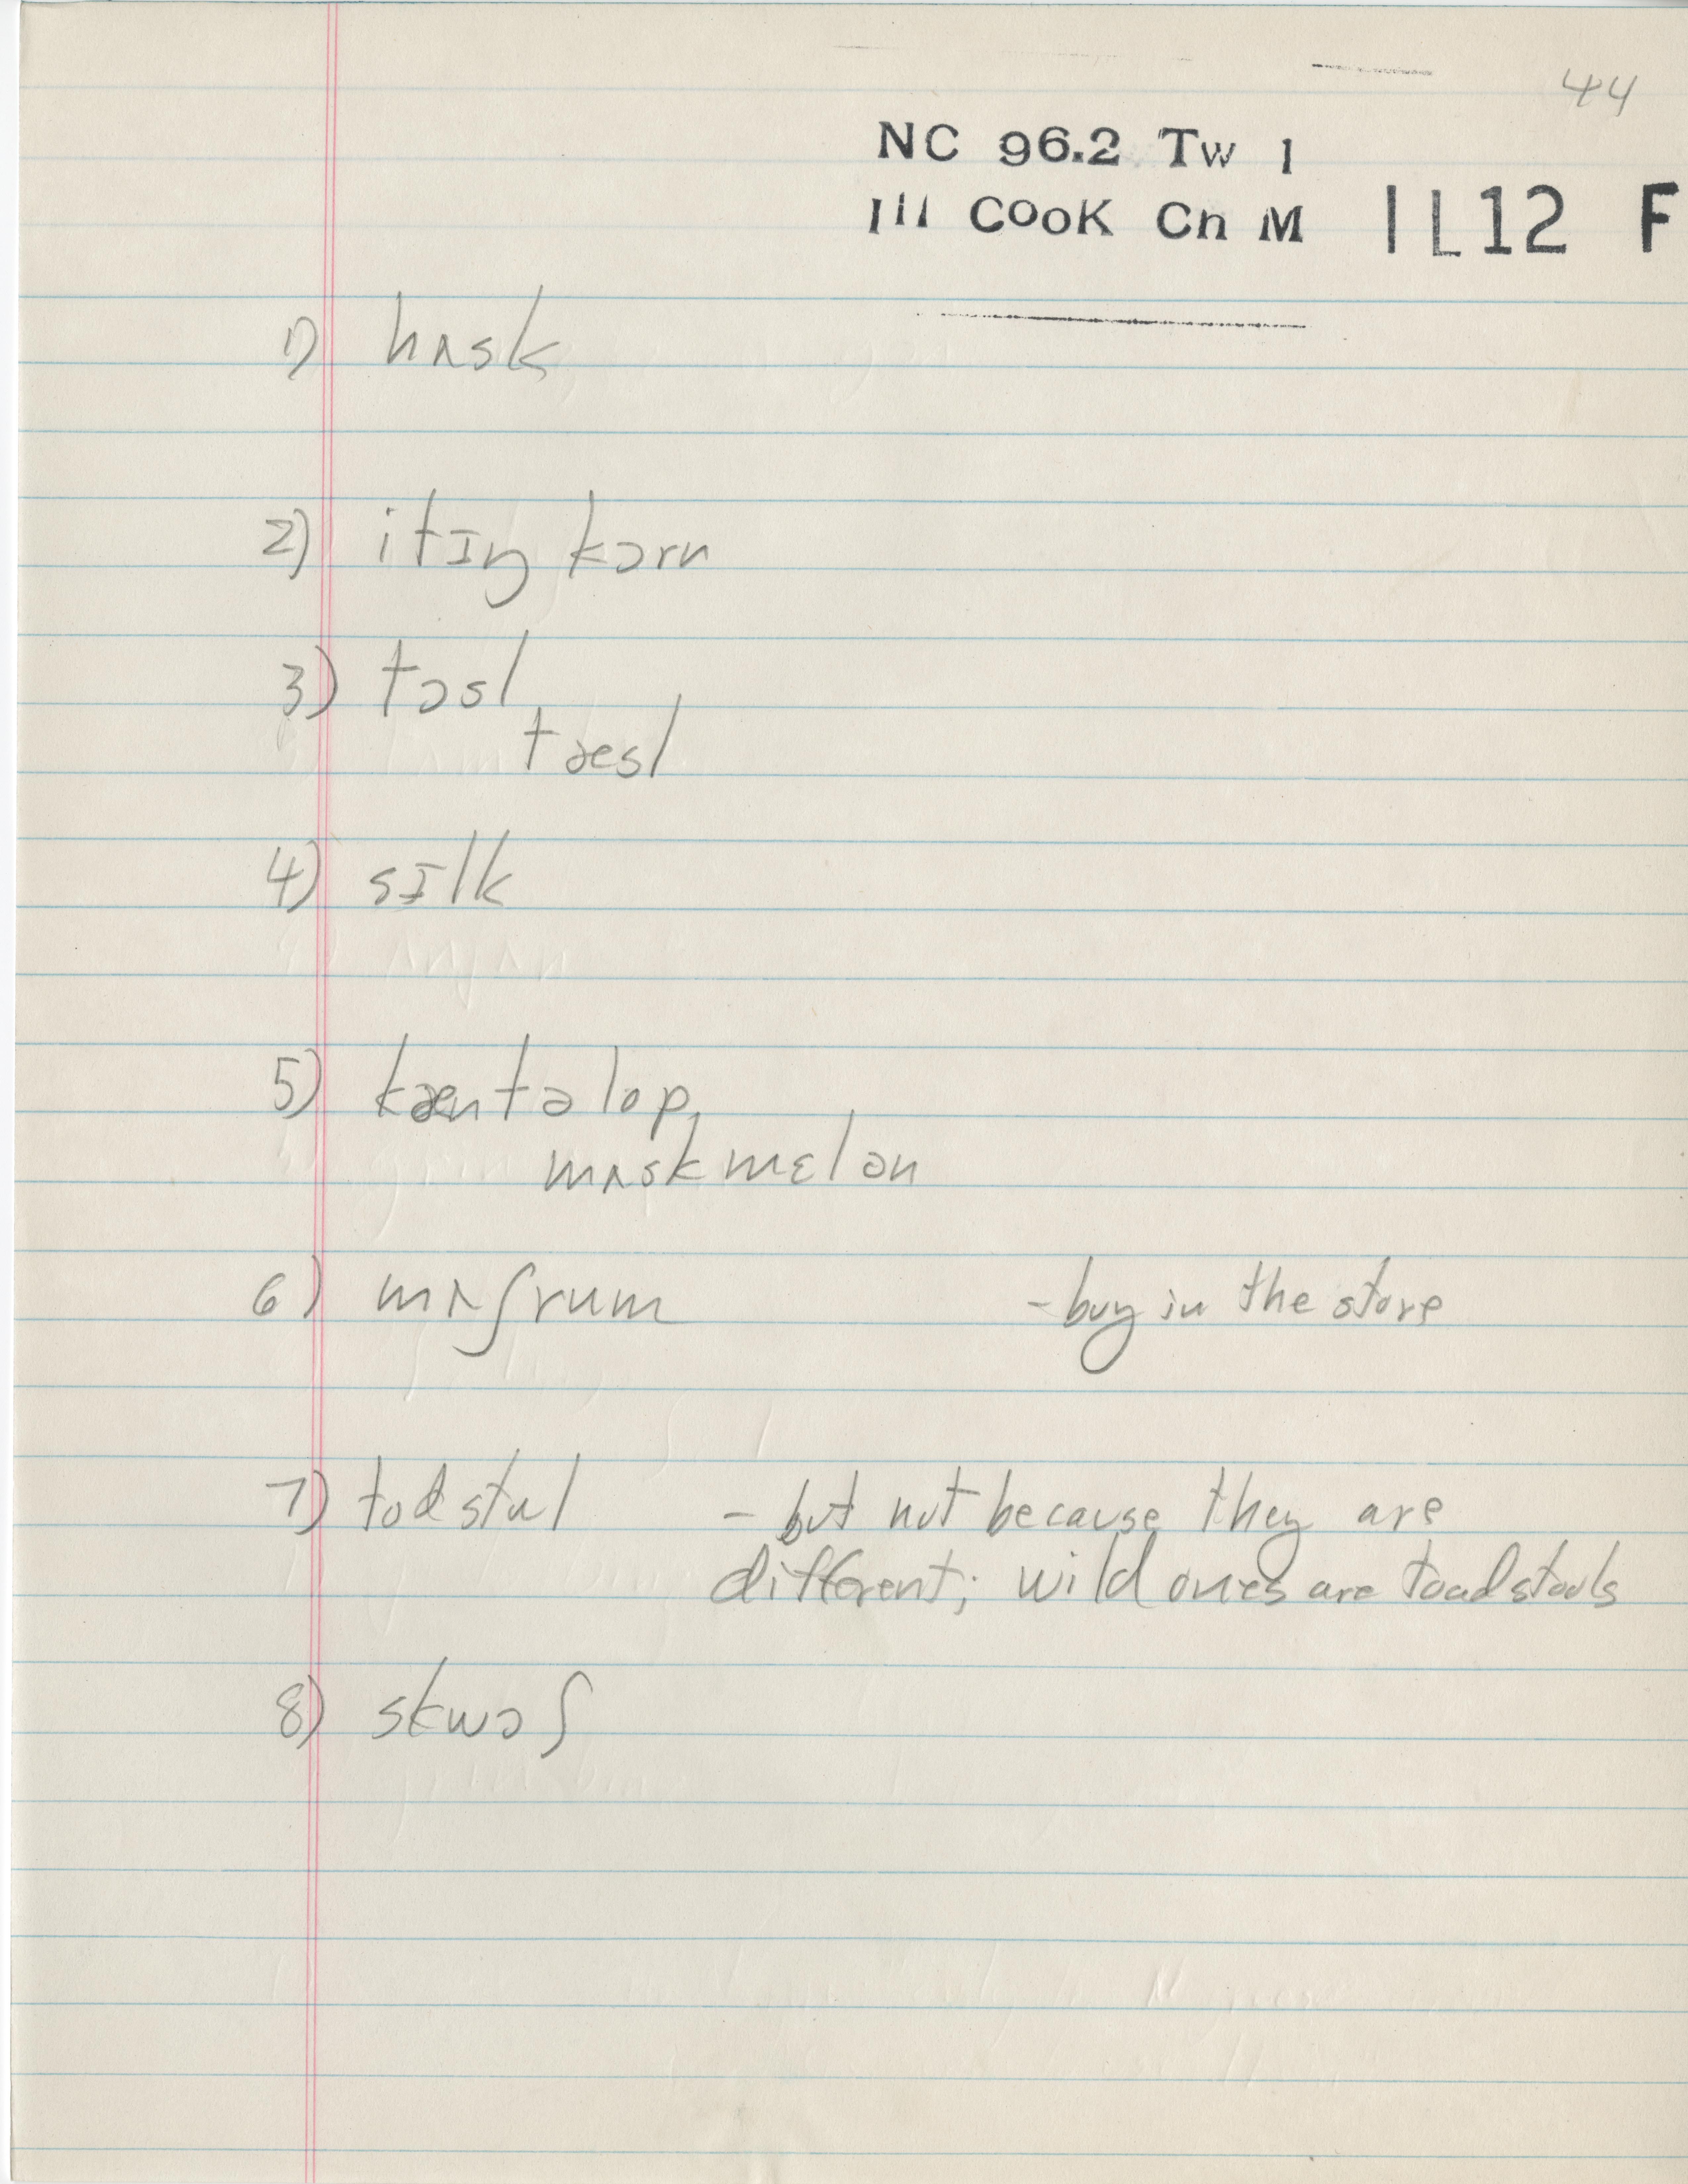 44
NC 96.2 Tw 1
Ill COOK Ch M IL12 F
1) hʌsk
2) itɪŋ kɔrn
3) tɔsl,
tæsl
4) sɪlk
5) kæntəlop,
mʌskmɛlən
6) mʌʃrum -buy in the store
7) todstul - but not because they are
different; wild ones are toadstools
8) skwɔʃ